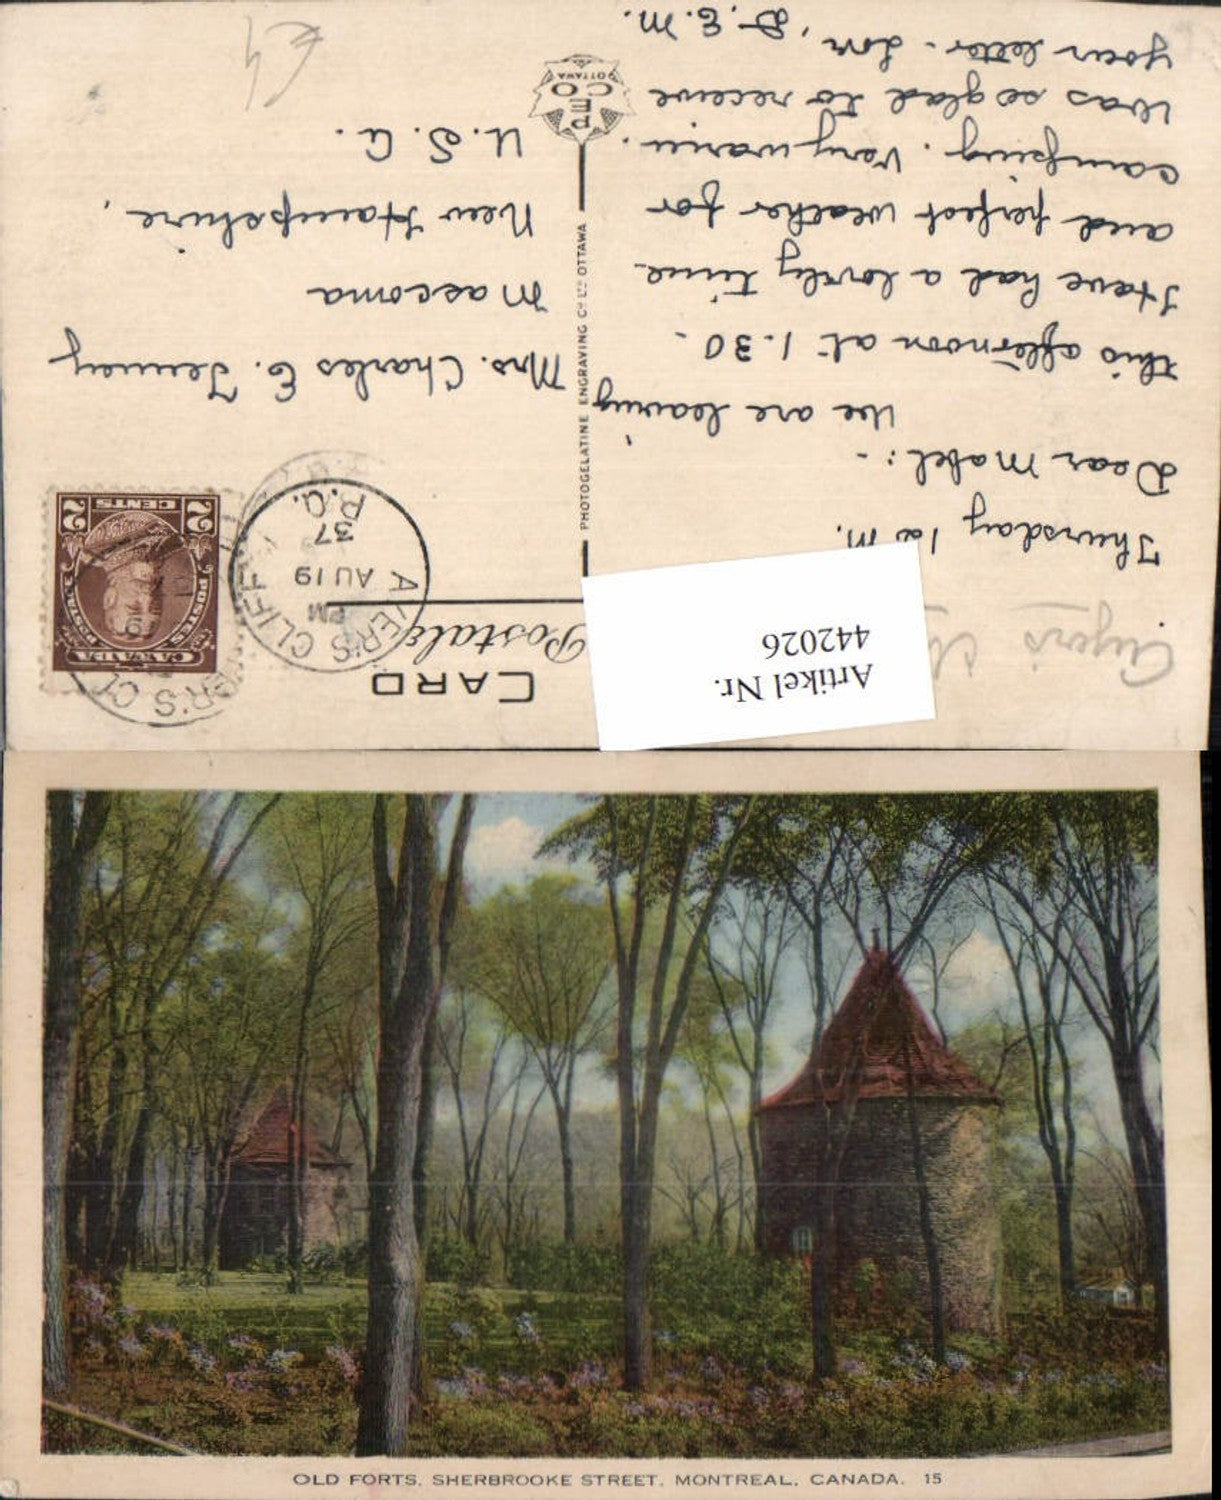 Ayer's
Artikel Nr.
442026
Postale
CARD
Thursday
Dear Mabel:-
We are leaving
this afternoon at 1.30 -
Have had a lovely time
and perfect weather for
camping. Very warm.
Was so glad to receive
your letter - Lov, D.E.M.
Mrs. Charles E. Tenney
Mascoma
New Hampshire,
U.S.A.
AYER'S CLIFF
PM
AU 19
37
P.Q.
CANADA
POSTES POSTAGE
2 CENTS 2
PHOTOGELATINE ENGRAVING Co LTD OTTAWA
PECO
OTTAWA
€4
OLD FORTS, SHERBROOKE STREET, MONTREAL, CANADA. 15